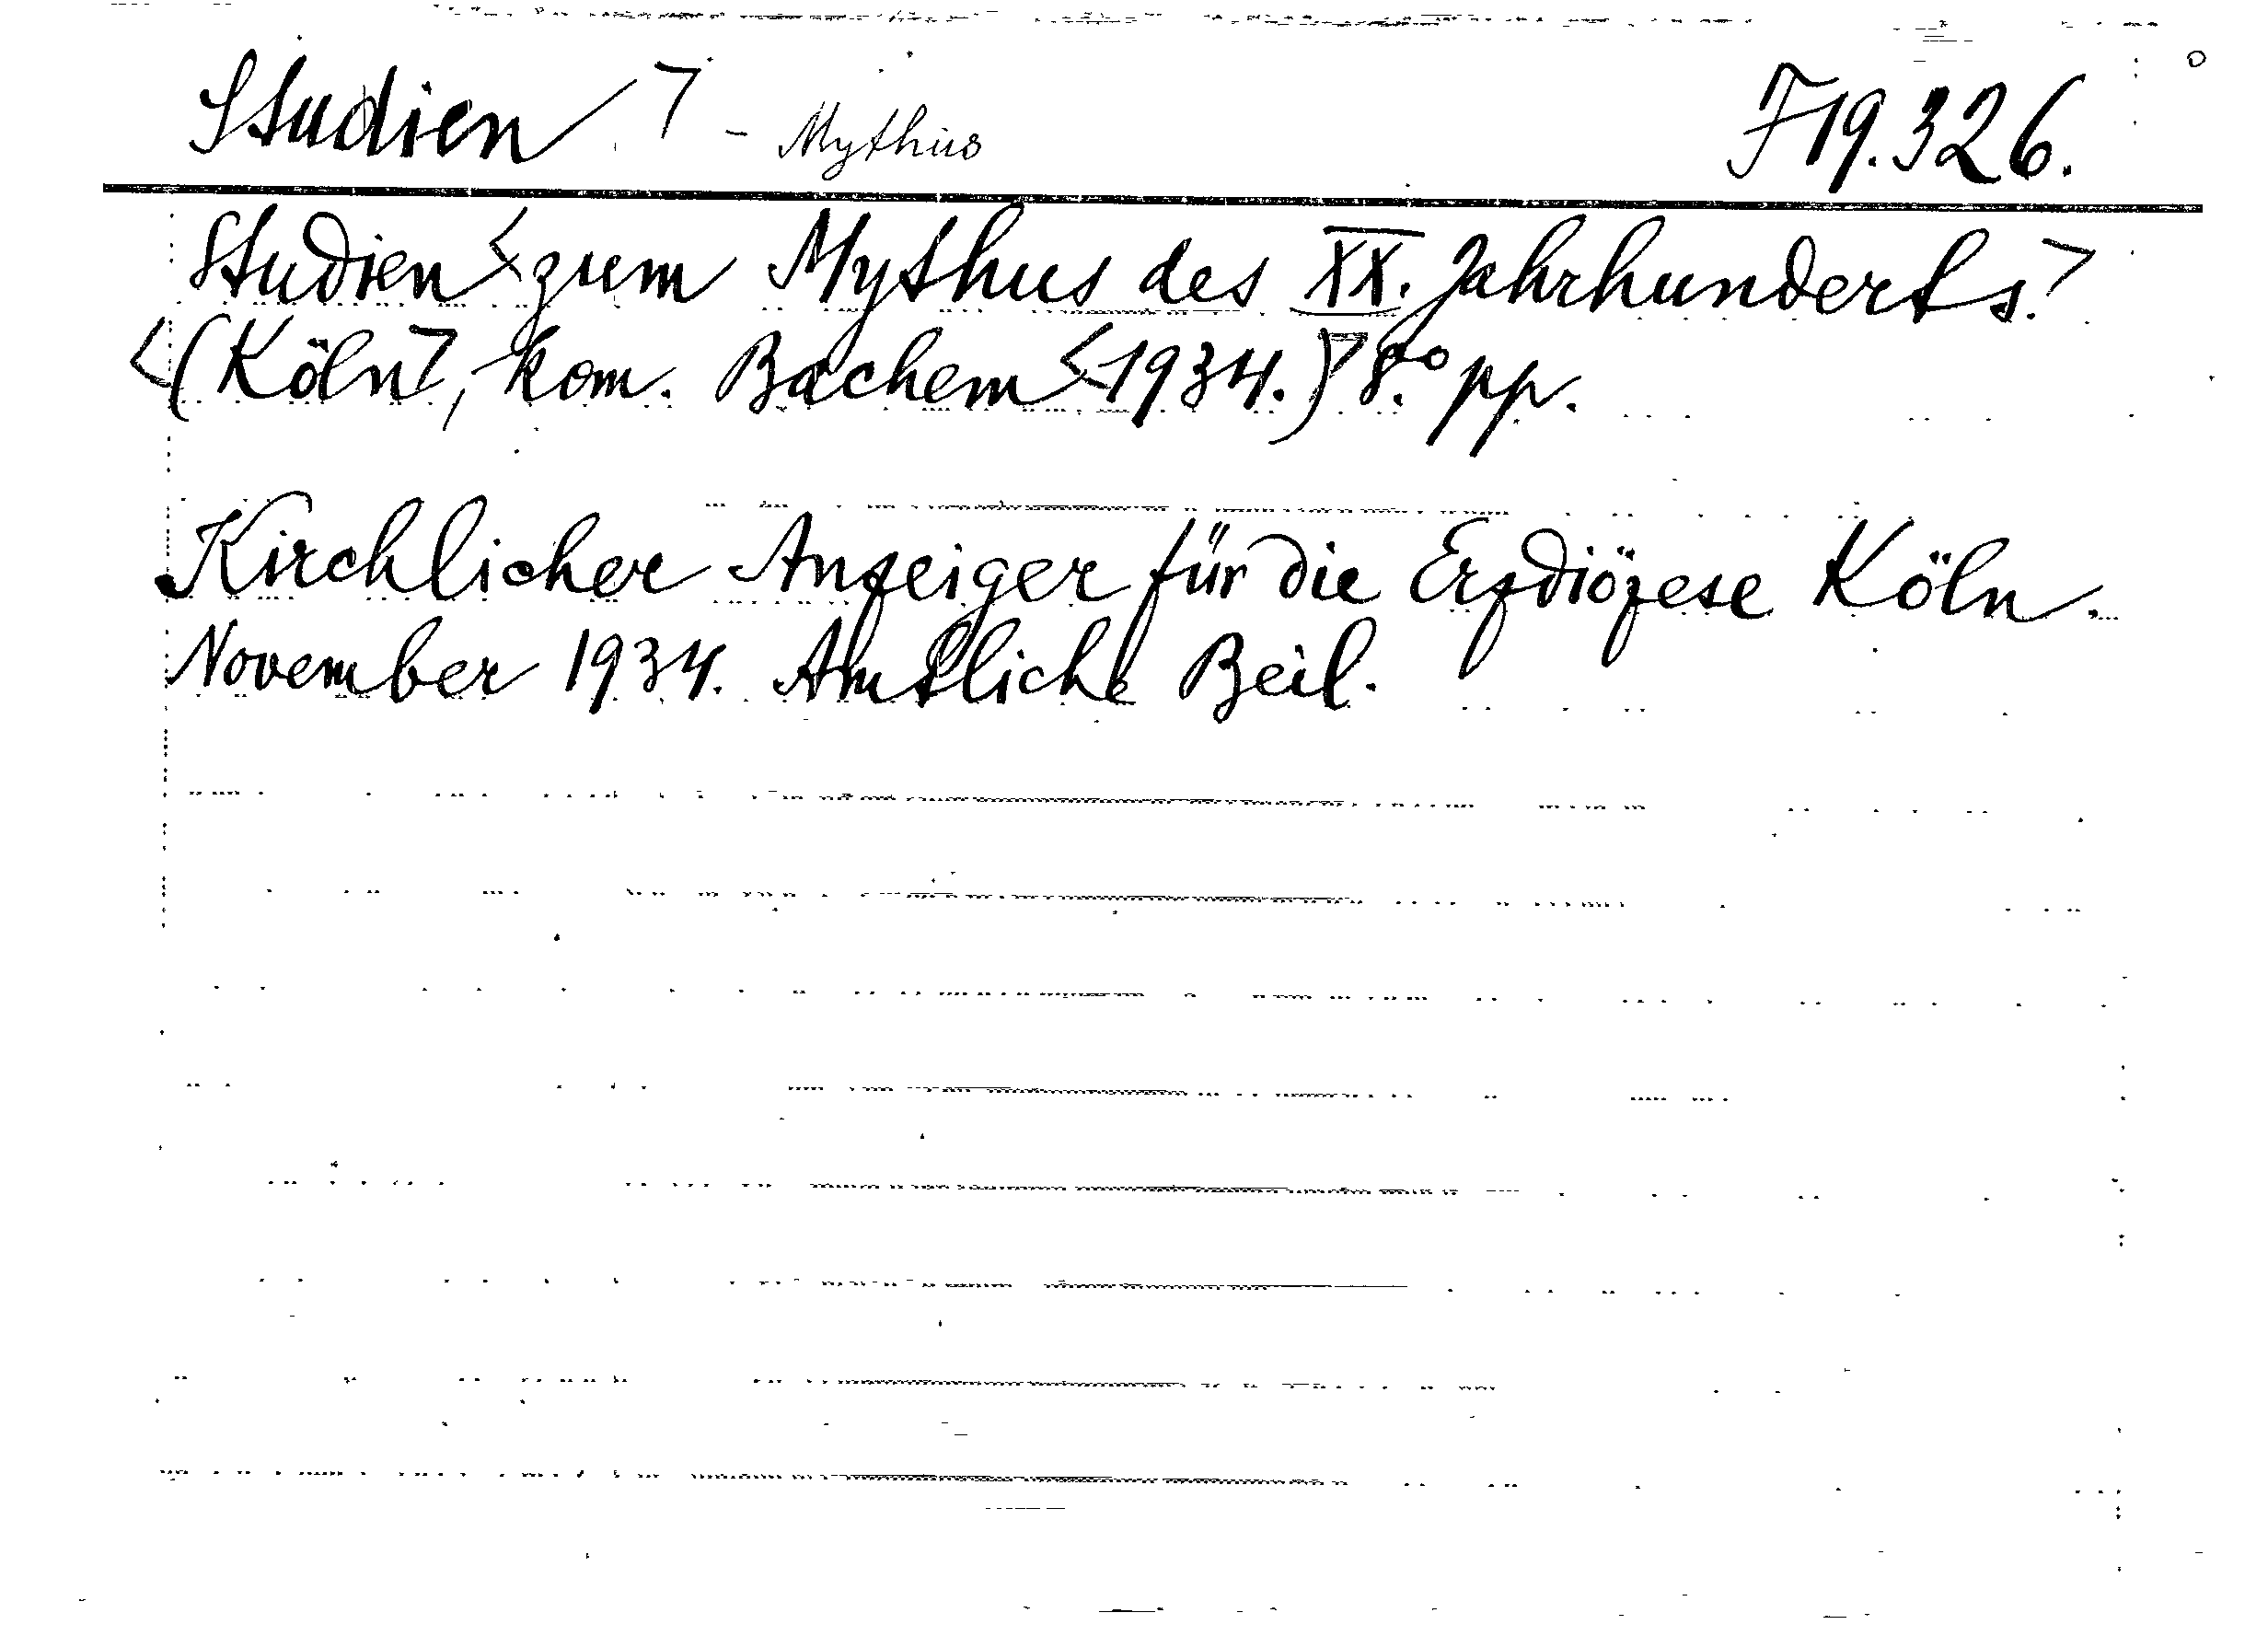 Studien ⁊ - Mythus F 19.326.
Studien < zum Mythus des XX. Jahrhunderts. >
<(Köln>, kom. Bachem < 1934.)> 8.° pp.
Kirchlicher Anzeiger für die Erzdiözese Köln.
November 1934. Amtliche Beil.